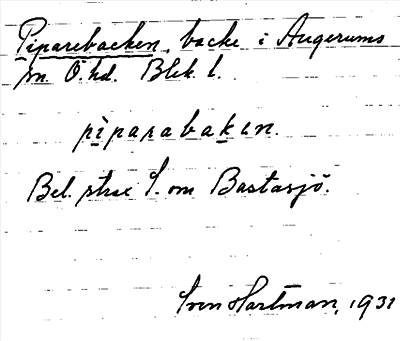 Piparebacken, backe i Augerums
sn. Ö. hd. Blek. l.
pìparabakɩn.
Bel. strax S. om Bastasjö.
Sven Hartman, 1931